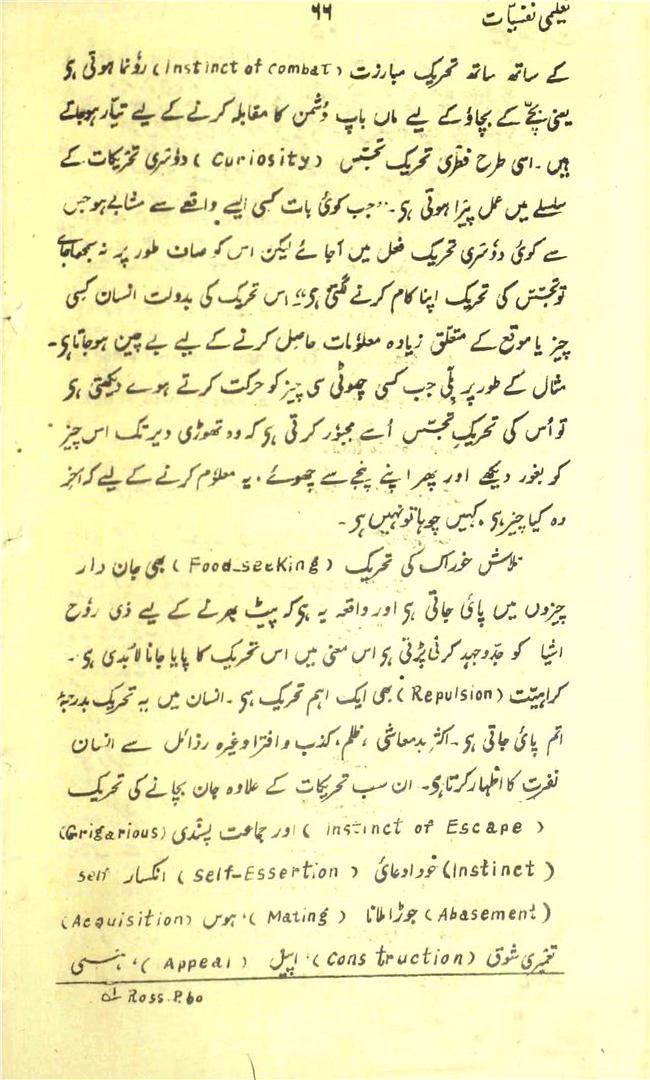 ۶۶
تعلیمی نفسیات
کے ساتھ ساتھ تحریک مبارزت (Instinct of combat) رؤنما ہوتی ہی
یعنی بچّے کے بچاؤ کے لیے ماں باپ دُشمن کا مقابلہ کرنے کے لیے تیّار ہوجاتے
ہیں ۔ اسی طرح فطری تحریک تجسّس (Curiosity) دؤسری تحریکات کے
سلسلے میں عمل پیَرا ہوتی ہی ۔ "جب کوئی بات کسی ایسے واقعے سے مشابہے ہو جس
سے کوئی دؤسری تحریک فعل میں آجائے لیکن اس کو صاف طور پر نہ سمجھا جائے
تو تجسّس کی تحریک اپنا کام کرنے لگتی ہی"۔ اس تحریک کی بدولت انسان کسی
چیز یا موقع کے متعلّق زیادہ معلؤمات حاصِل کرنے کے لیے بے چین ہوجاتا ہی ۔
مثال کے طور پر بِلّی جب کسی چھوٹی سی چیز کو حرکت کرتے ہوے دیکھتی ہی
تو اُس کی تحریکِ تجسّس اُسے مجبؤر کرتی ہی کہ وہ تھوڑی دیر تک اس چیز
کو بغور دیکھے اور پھر اپنے پنجے سے چھوئے ، یہ معلؤم کرنے کے لیے کہ آخر
وہ کیا چیز ہی ، کہیں چوہا تو نہیں ہی ۔
تلاش خوراک کی تحریک (Food-seeking) بھی جان دار
چیزوں میں پائی جاتی ہی اور واقعہ یہ ہی کہ پیٹ بھرنے کے لیے ذی رؤح
اشیا کو جدّوجہد کرنی پڑتی ہی اس معنی میں اس تحریک کا پایا جانا لابُدی ہی ۔
کراہیّت (Repulsion) بھی ایک اہم تحریک ہی ۔ انسان میں یہ تحریک بدرجۂ
اتم پائی جاتی ہی ۔ اکثر بدمعاشی ، ظلم، کذب و افترا وغیرہ رذائل سے انسان
نفرت کا اظہار کرتا ہی ۔ ان سب تحریکات کے علاوہ جان بچانے کی تحریک
(Instinct of Escape) اور جماعت پسندی (Grigarious)
(Instinct) خود ادعائی (Self-Essertion) انکسار self
(Abasement) جوڑا ملانا (Mating) ، ہوس (Acquisition)
تعمیری شوق (Construction) ، اپیل (Appeal) ، ہنسی
لہ Ross. P. 60